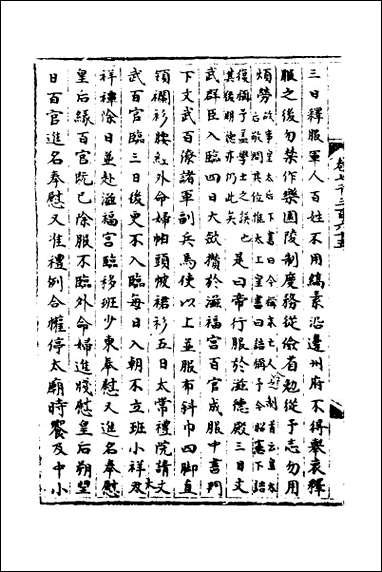 三日釋服軍人百姓不用縞素沿邊州府不得舉哀釋
服之後勿禁作樂園陵制度務從儉省勉從予志勿用
煩勞
是日帝行服於滋德殿三日文
武群臣入臨四日大斂攢於滋福宮百官成服中書門
下文武百僚諸軍副兵馬使以上並服布斜巾四腳直
領襴衫腰絰外命婦帕頭帔裙衫五日太常禮院請文
武百官臨三日後更不入臨每日入朝不立班小祥及大
祥禫除日並赴滋福宮臨移班少東奉慰又進名奉慰
皇后緣百官既已除服不臨外命婦進牋慰皇后朔望
日百官進名奉慰又准禮例合權停太廟時饗及中小